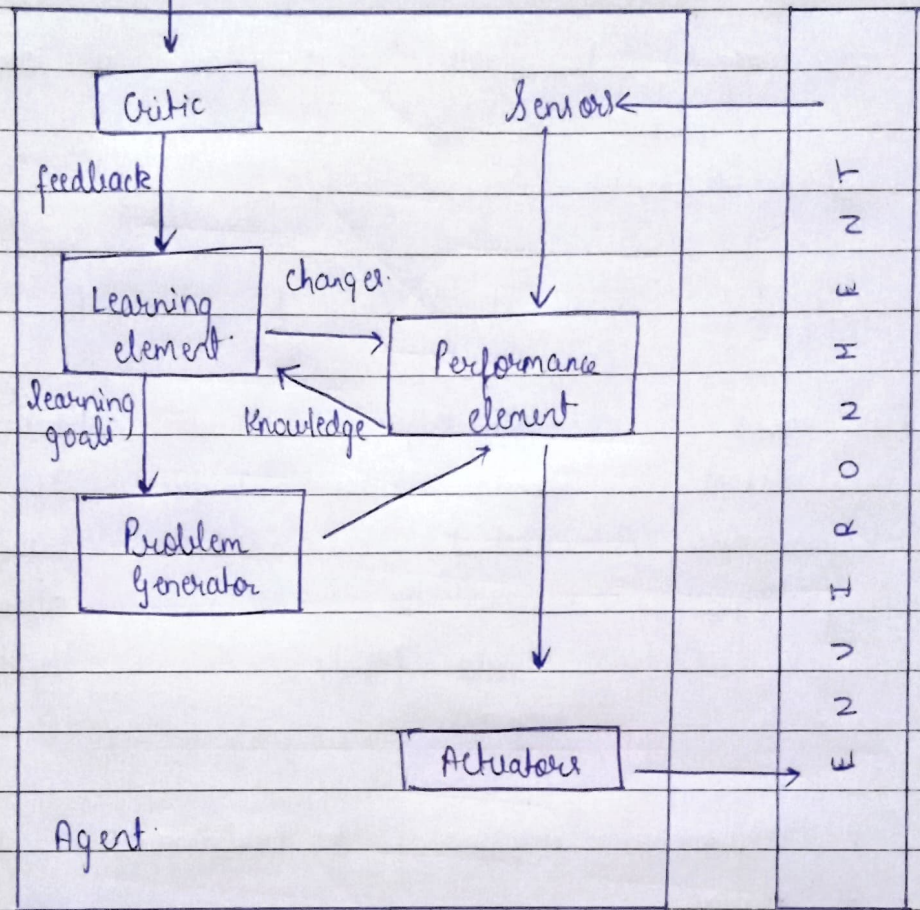 Critic
Sensors
feedback
changes
Learning
element
Performance
element
learning
goals
Knowledge
Problem
Generator
Actuators
Agent
ENVIRONMENT